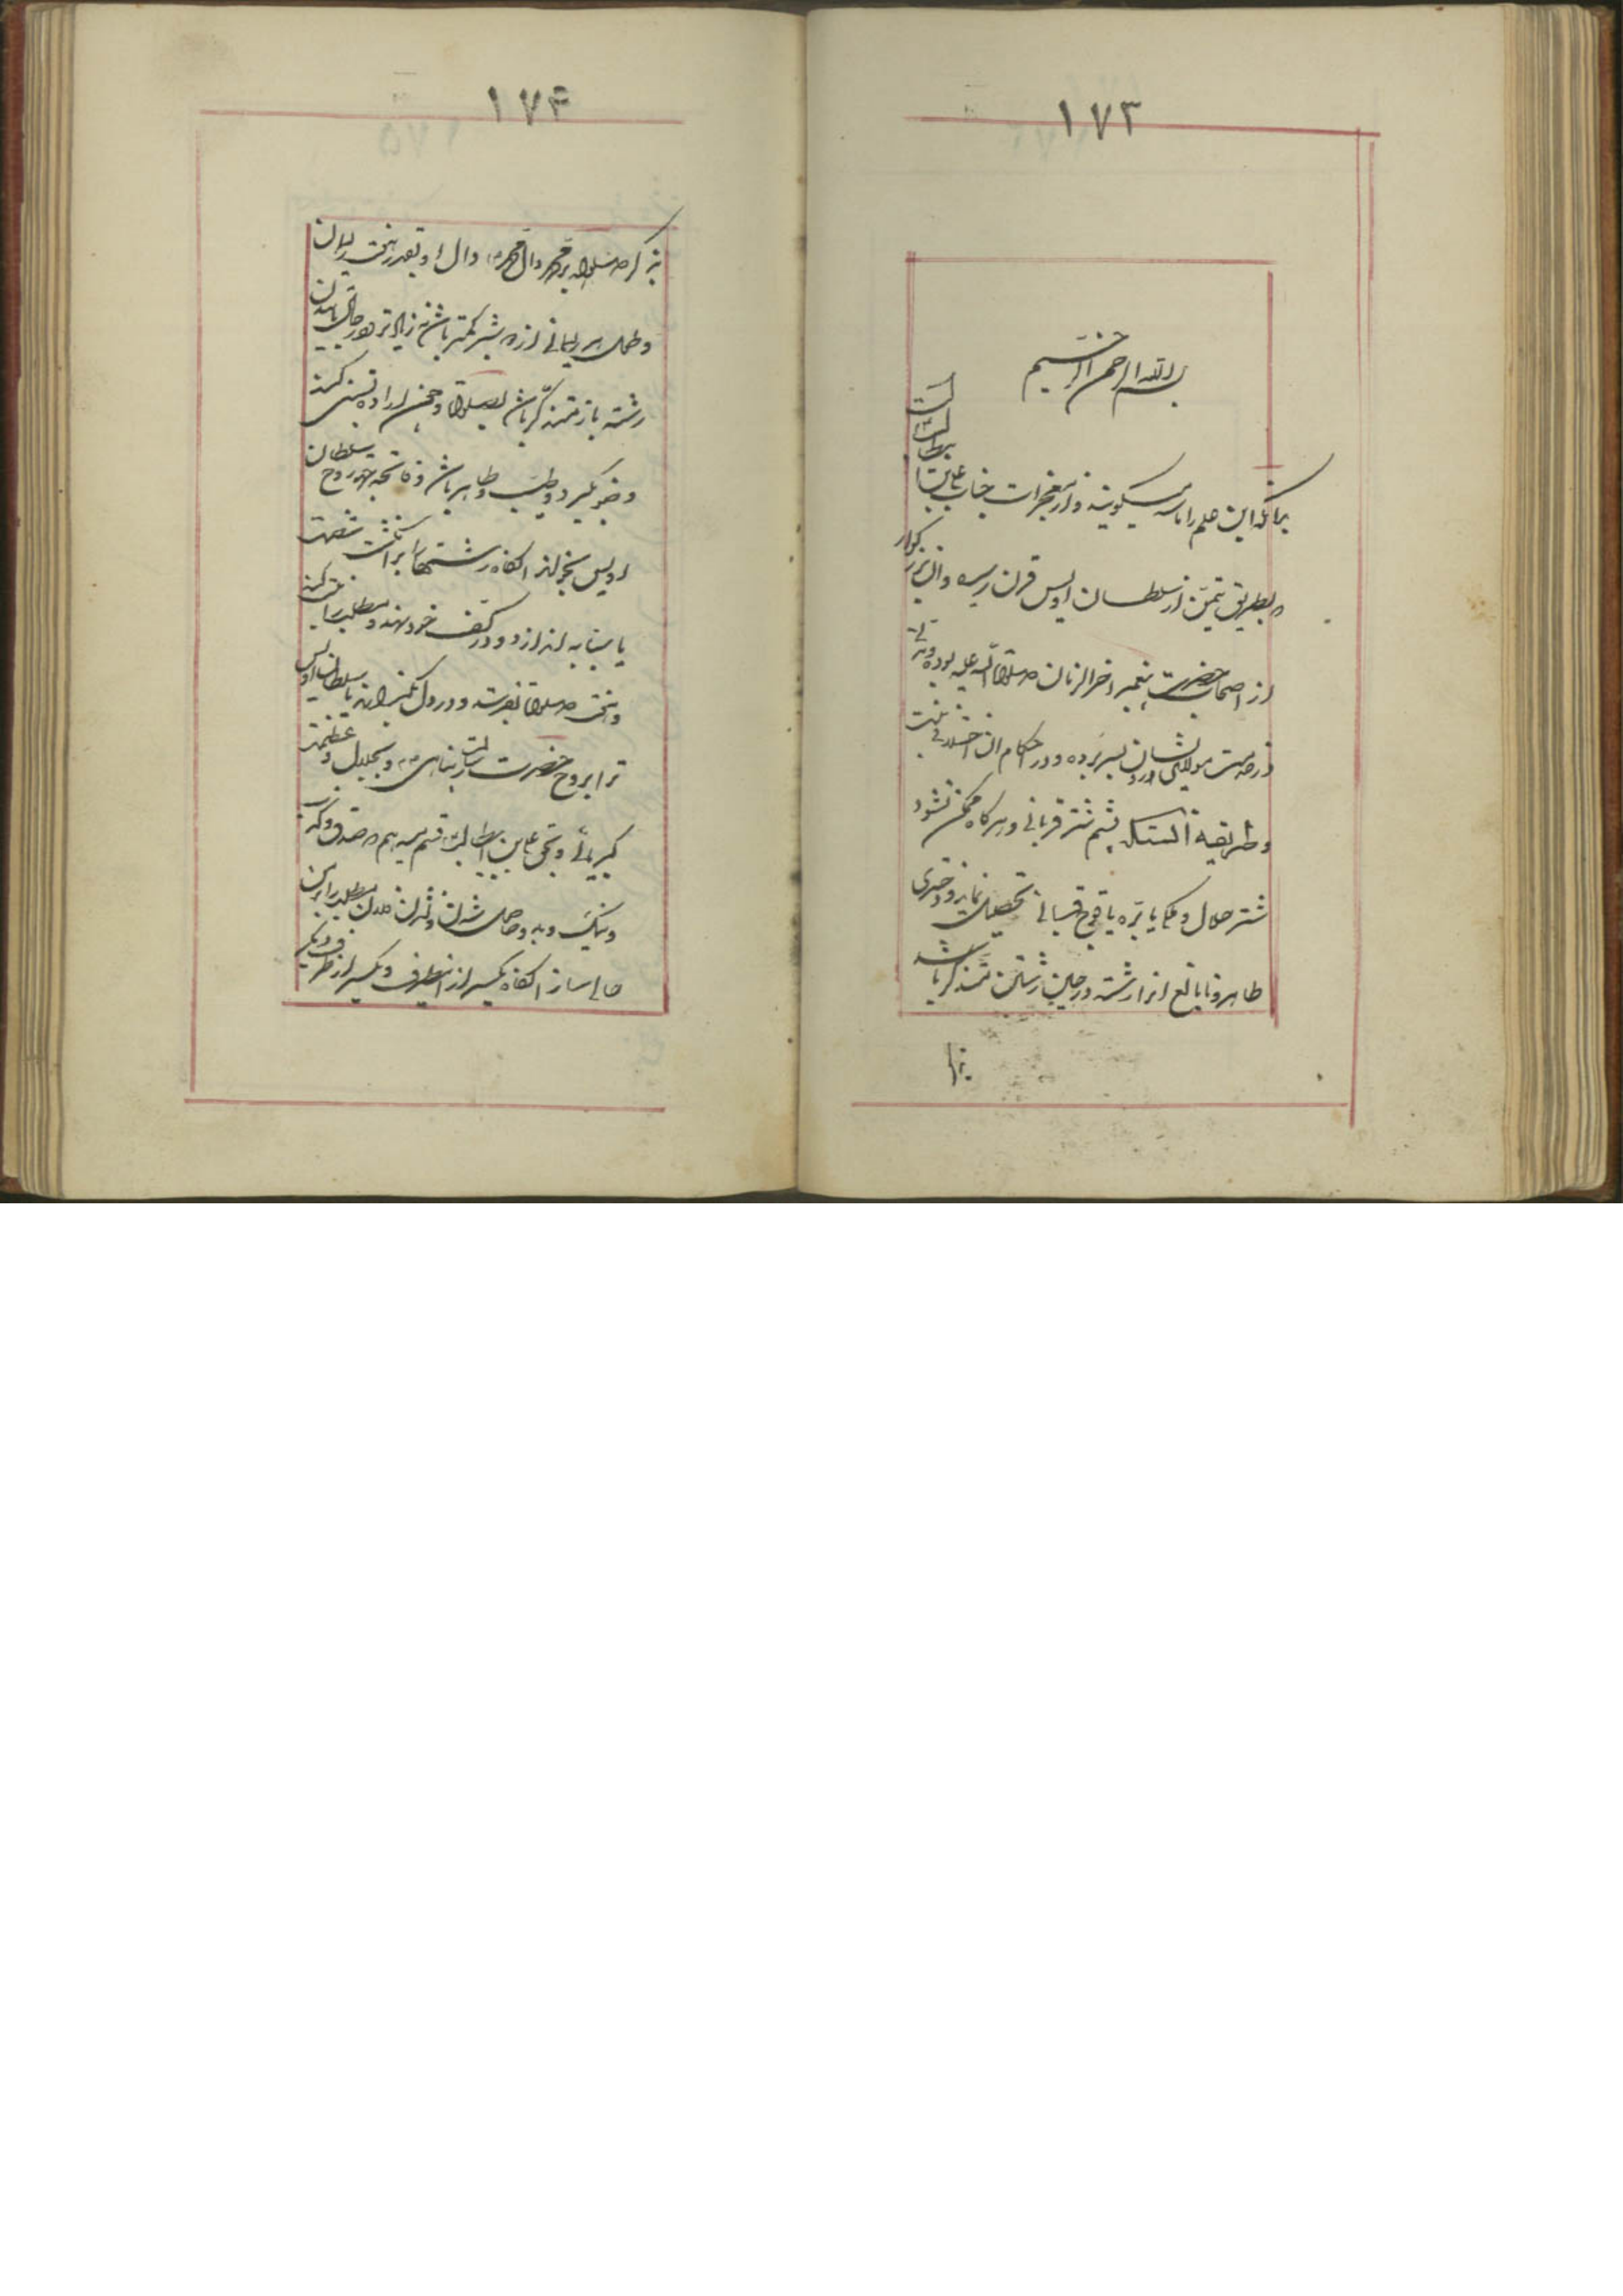 ۱۷۳
بسم الله الرحمن الرحیم
بدانکه این علم را ماسه میگویند و از معجزات جناب علی بن ابیطالب است
و بطریق تیمن از سلطان اویس قرن رسیده و آن بزرگوار
از اصحاب حضرت پیغمبر اخر الزمان صلوة الله علیه بوده و
در خدمت مولای ایشان بسر برده و در احکام آن اختلافی نیست
و طریقه آنستکه پشم شتر قربانی و هرگاه ممکن نشود
شتر حلال و یا بره یا قوچ قربانی تحصیل نماید و دختری
طاهره نابالغ انرا رشته در حین رشتن متذکر باشد
بذا
۱۷۴
بذکر صلوات بر محمد وال محمد وال او بقدر پنج ریسمان
و طول هر ریسمانی از ده بیشتر کمتر باشد نه زیادتر و در حال تابیدن
رشته باز متذکر باشد بصلوات و چون اراده نیت کند
وضو بگیرد و طیب و طاهر باشد و فاتحه بروح سلطان
اویس بخواند انگاه رشتها را بر انگشت شصت
یا سبابه اندازد و در کف خود نهد و مطلب را نیت کند
و پنج صلوات بفرستد و در دل بگذراند یا سلطان اویس
ترا بروح حضرت رسالت پناهی و بجلال و عظمت
کبریائی و بحق علی بن ابیطالب قسم میدهم
و نیک و بد و حاصل شدن و نشدن مطلب را بر من
حالی ساز انگاه یکسر از اینطرف و یکسر از طرف دیگر